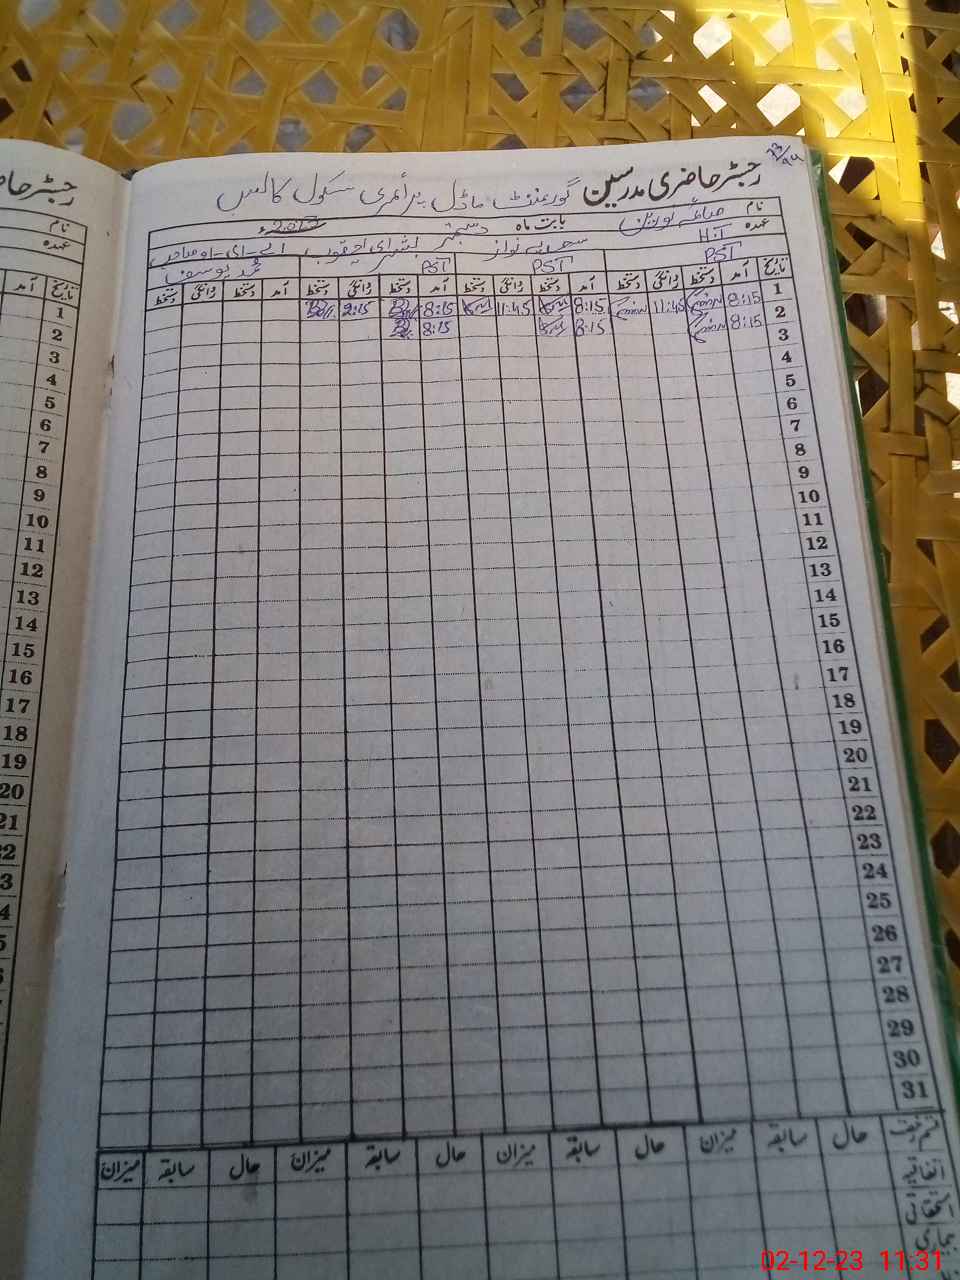 رجسٹر حاضری مدرسین گورنمنٹ ماڈل پرائمری سکول کالس
23/94
نام صائمہ نورین بابت ماہ دسمبر 2023ء
عہدہ H.T سعدیہ نواز بشریٰ یعقوب اے-ای-او صاحب
PST PST PST محمد یوسف
تاریخ آمد دستخط روانگی دستخط آمد دستخط روانگی دستخط آمد دستخط روانگی دستخط آمد دستخط روانگی دستخط
1 8:15 11:45 8:15 11:45 8:15 2:15
2 8:15 8:15 8:15
3
4
5
6
7
8
9
10
11
12
13
14
15
16
17
18
19
20
21
22
23
24
25
26
27
28
29
30
31
قسم رخصت حال سابقہ میزان حال سابقہ میزان حال سابقہ میزان حال سابقہ میزان
اتفاقیہ
استحقاقی
بیماری
رجسٹر حا
نام
عہدہ
تاریخ آمد
1
2
3
4
5
6
7
8
9
10
11
12
13
14
15
16
17
18
19
20
21
02-12-23 11:31